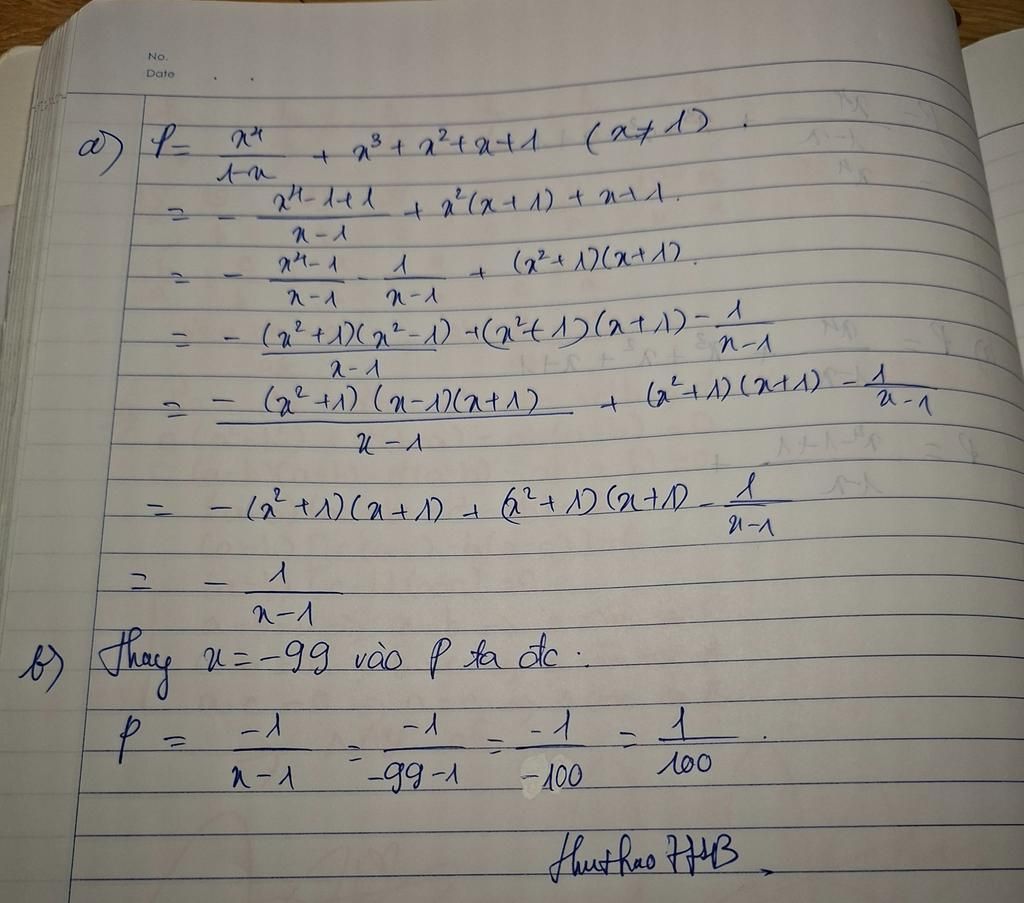 No.
Date . .
a) P = x⁴/(1-x) + x³ + x² + x + 1 (x ≠ 1).
= - (x⁴-1+1)/(x-1) + x²(x+1) + x+1.
= - (x⁴-1)/(x-1) - 1/(x-1) + (x²+1)(x+1).
= - (x²+1)(x²-1)/(x-1) + (x²+1)(x+1) - 1/(x-1)
= - (x²+1)(x-1)(x+1)/(x-1) + (x²+1)(x+1) - 1/(x-1)
= - (x²+1)(x+1) + (x²+1)(x+1) - 1/(x-1)
= - 1/(x-1)
b) Thay x = -99 vào P ta đc:
P = -1/(x-1) = -1/(-99-1) = -1/(-100) = 1/100.